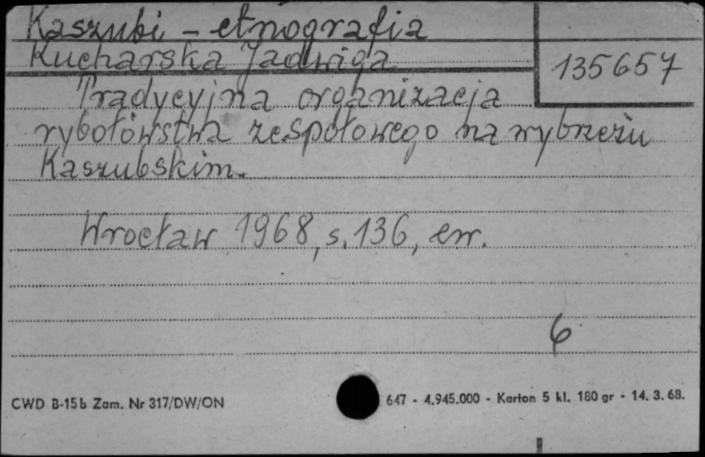 Kaszubi - etnografia
Kucharska Jadwiga
135657
Tradycyjna organizacja
rybołówstwa zespołowego na wybrzeżu
Kaszubskim.
Wrocław 1968, s. 136, err.
6
CWD B-15b Zam. Nr 317/DW/ON
647 - 4.945.000 - Karton 5 kl. 180 gr - 14. 3. 68.